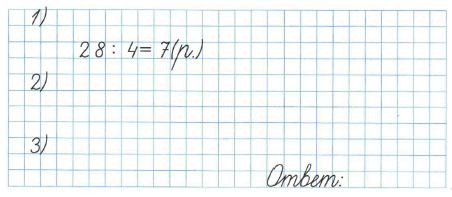 1)
28 : 4 = 7(р.)
2)
3)
Ответ: